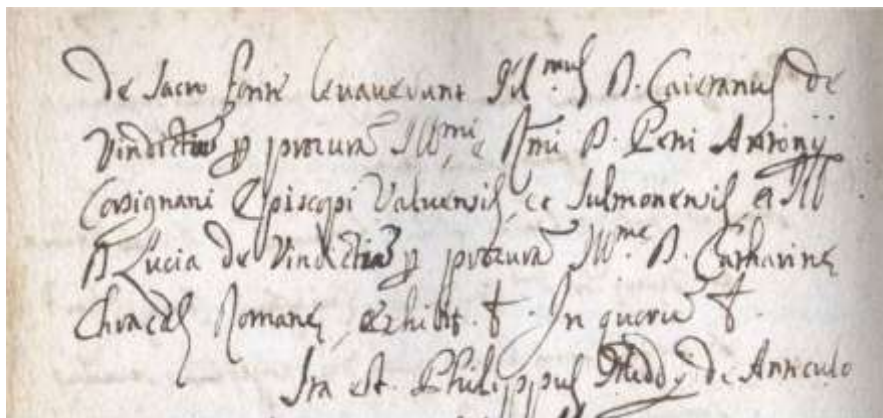 de Sacro fonte levaverunt Ill.mus D. Caietanus de
Vindictis p procura Ill.mi, e Rmi D. Petri Antonij
Corsignani Episcopi Valvensis, et Sulmonensis, et Ill
D Lucia de Vindictis p procura Ill.me D. Catharine
Romane, exhibit. f. In quoru f.
Ita est. Philippus de Anniculo